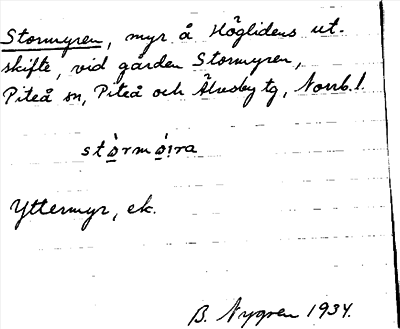 Stormyren, myr å Höglidens ut-
skifte, vid gården Stormyren,
Piteå sn, Piteå och Älvsby tg, Norrb. l.
Yttermyr, ek.
B. Nygren 1934.